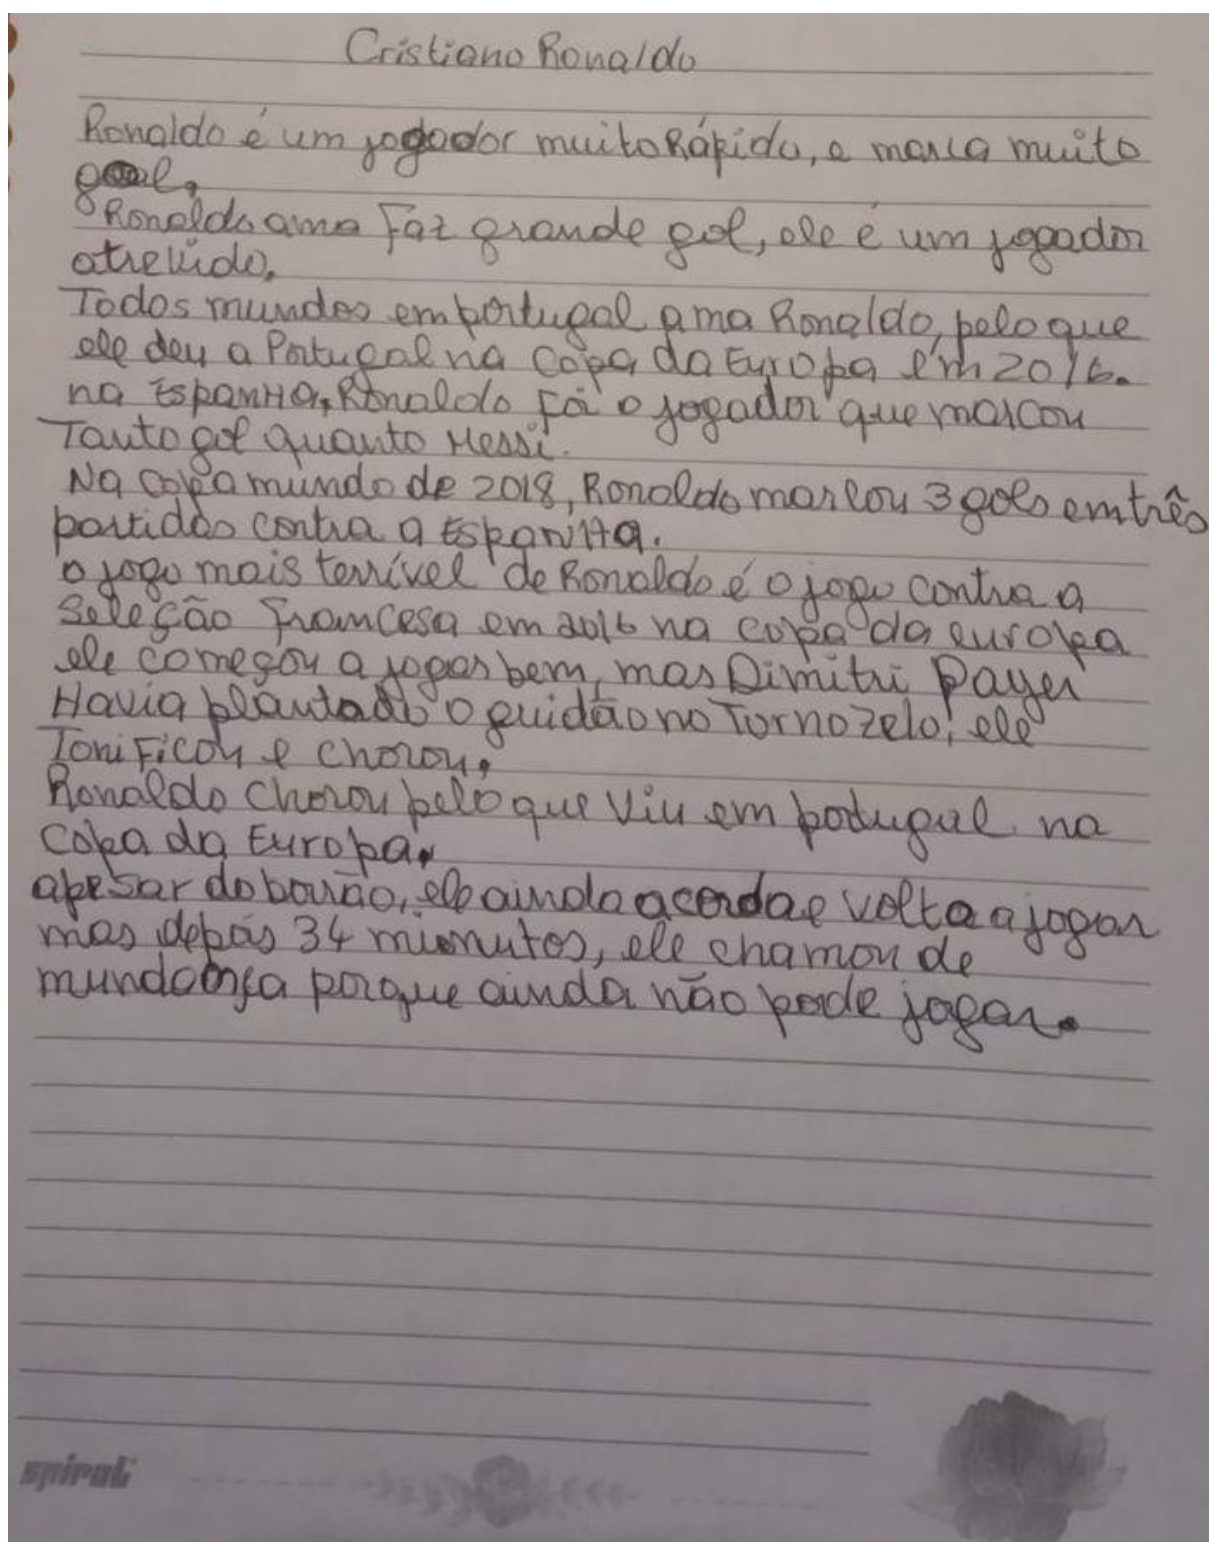 Cristiano Ronaldo
Ronaldo é um jogador muito Rápido, e marca muito
goal,
Ronaldo ama Faz grande gol, ele é um jogador
atrevido,
Todos mundos em portugal ama Ronaldo, pelo que
ele deu a Portugal na Copa da Europa em 2016.
na EspanHa, Ronaldo foi o jogador que marcou
Tanto gol quanto Messi.
Na copa mundo de 2018, Ronaldo marcou 3 gols em três
partidas contra a EspanHa.
o jogo mais terrível de Ronaldo é o jogo contra a
Seleção Francesa em 2016 na copa da europa
ele começou a jogar bem, mas Dimitri Payer
Havia plantado o guidão no Tornozelo, ele
ToniFicou e chorou,
Ronaldo Chorou pelo que viu em podugal na
Copa da Europa.
apesar do, ele ainda acorda e volta a jogar
mas depois 34 mionutos, ele chamou de
porque ainda não pode jogar.
spiral